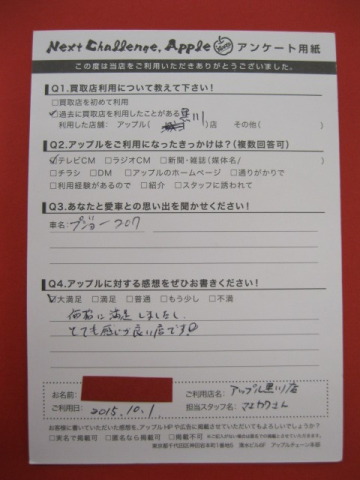 Next Challenge, Apple アンケート用紙
この度は当店をご利用いただきありがとうございました。
Q1.買取店利用について教えて下さい!
□買取店を初めて利用
☑過去に買取店を利用したことがある
利用した店舗: アップル( 黒川 )店 その他( )
Q2.アップルをご利用になったきっかけは?(複数回答可)
☑テレビCM □ラジオCM □新聞・雑誌(媒体名/ )
□チラシ □DM □アップルのホームページ □通りがかりで
□利用経験があるので □紹介 □スタッフに誘われて
Q3.あなたと愛車との思い出を聞かせください!
車名: プジョー207
Q4.アップルに対する感想をぜひお書きください!
☑大満足 □満足 □普通 □もう少し □不満
価格に満足しました。
とても感じの良い店です
お名前: ご利用店名: アップル黒川店
ご利用日: 2015.10.1 担当スタッフ名:
お客様に書いていただいた感想を、アップルHPや広告に掲載させていただいてもよろしいでしょうか?
□実名で掲載可 □匿名なら掲載可 □掲載不可
東京都千代田区神田岩本町1番地5 清水ビル5F アップルチェーン本部